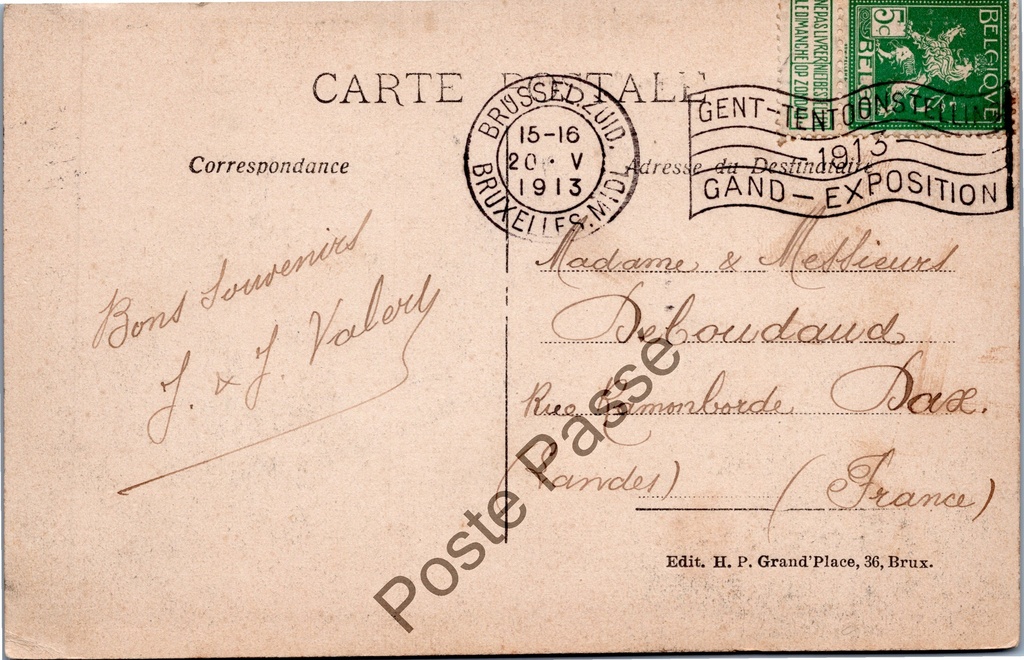 CARTE POSTALE
Correspondance
Adresse du Destinataire
BRUSSEL ZUID.
15-16
20 · V
1913
BRUXELLES. MIDI
GENT-TENTOONSTELLING
-1913-
GAND-EXPOSITION
NE PAS LIVRER NIET BESTELLEN
LE DIMANCHE OP ZONDAG
5c
BELGIQUE
BELGIË
Bons Souvenirs
J. & J. Valery
Madame & Messieurs
Deloudaud
Rue Ramonborde Dax.
(Landes) (France)
Edit. H. P. Grand'Place, 36, Brux.
Poste Passe